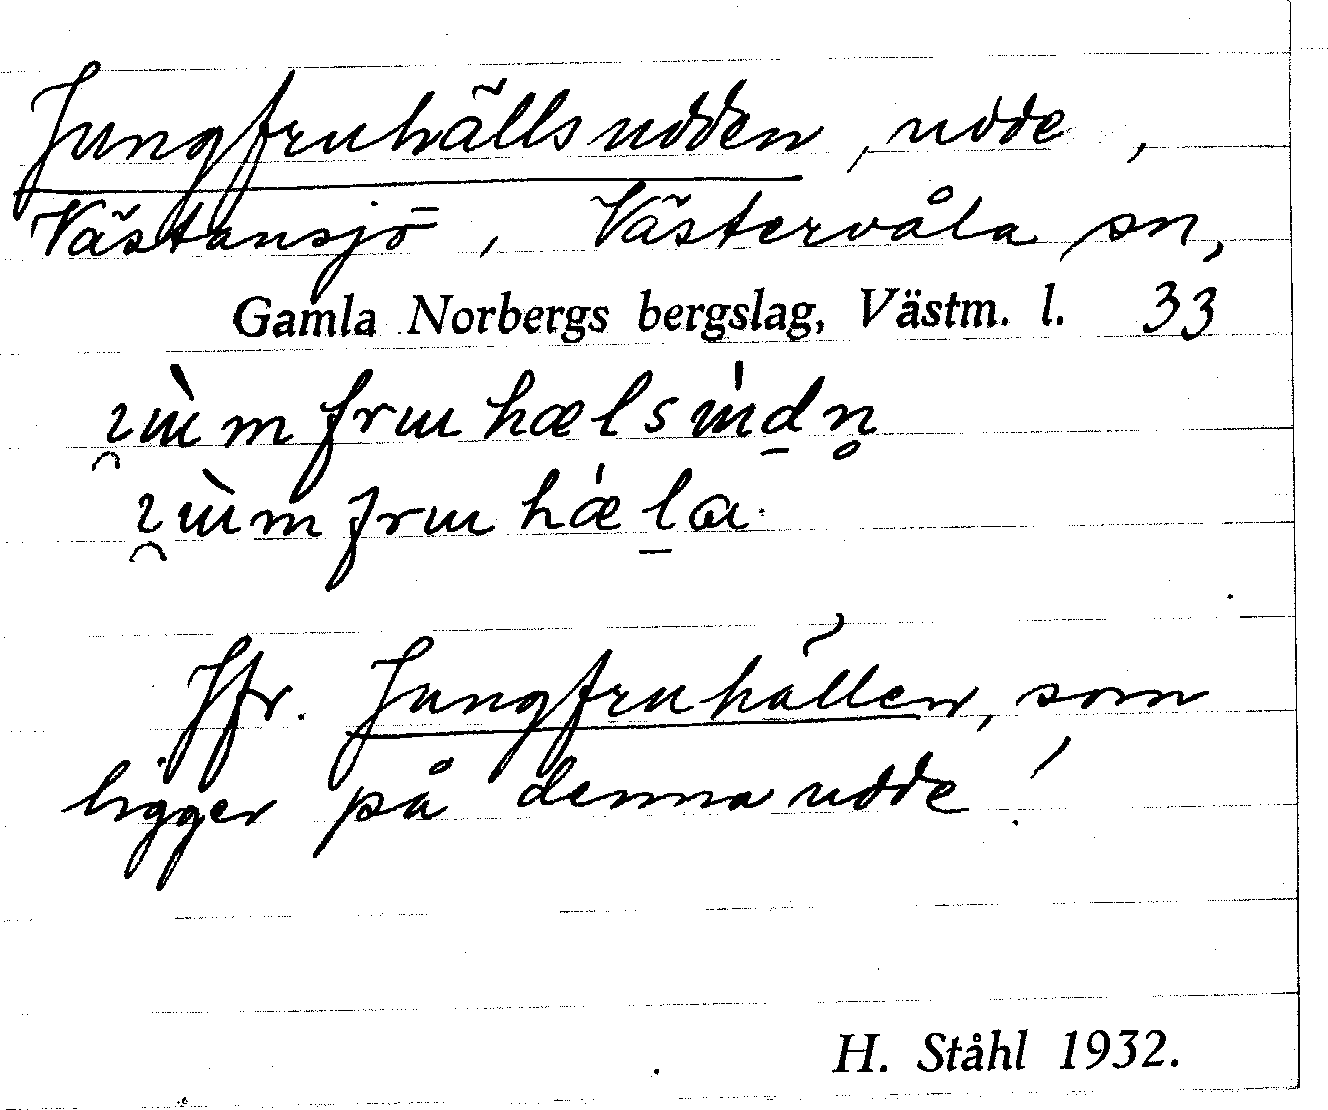 Jungfruhällsudden, udde,
Västansjö, Västervåla sn,
Gamla Norbergs bergslag, Västm. l. 33
Jfr. Jungfruhällen, som
ligger på denna udde!
H. Ståhl 1932.